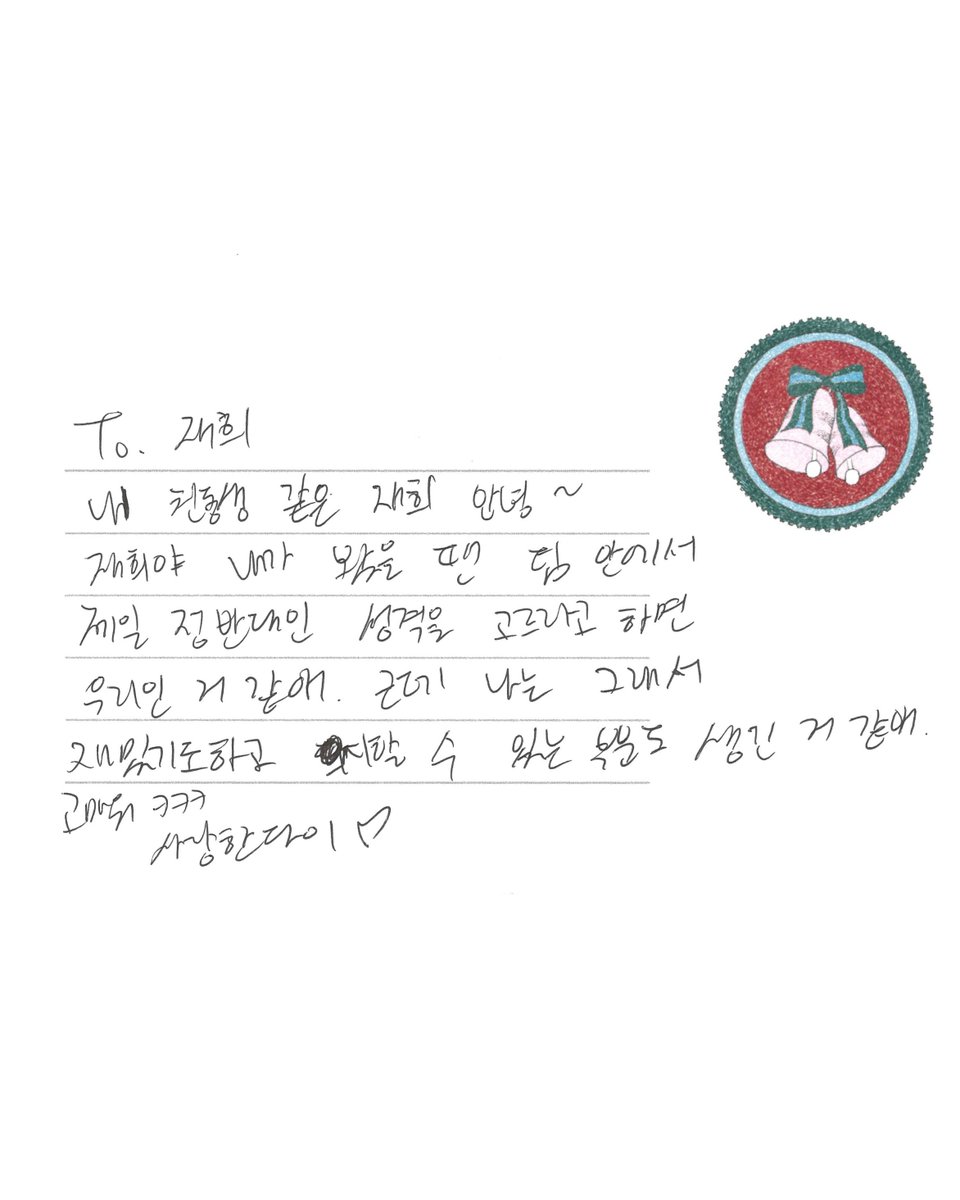 To. 재희
내 친동생 같은 재희 안녕~
재희야 내가 봤을 땐 팀 안에서
제일 정반대인 성격을 고르라고 하면
우리인 거 같애. 근데 나는 그래서
재밌기도하고 수 있는 부분도 생긴 거 같애.
고마워 ㅋㅋㅋ
사랑한다이 ♡